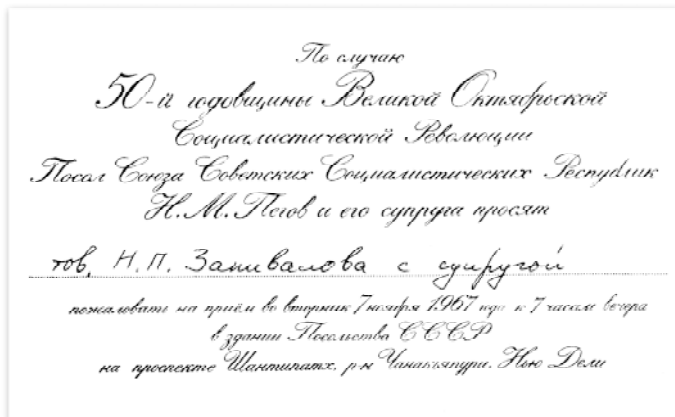 По случаю
50-й годовщины Великой Октябрьской
Социалистической Революции
Посол Союза Советских Социалистических Республик
Н. М. Пегов и его супруга просят
тов. Н. П. Запивалова с супругой
пожаловать на приём во вторник 7 ноября 1967 года к 7 часам вечера
в здании Посольства СССР
на проспекте Шантипатх, р-н Чанакьяпури. Нью Дели